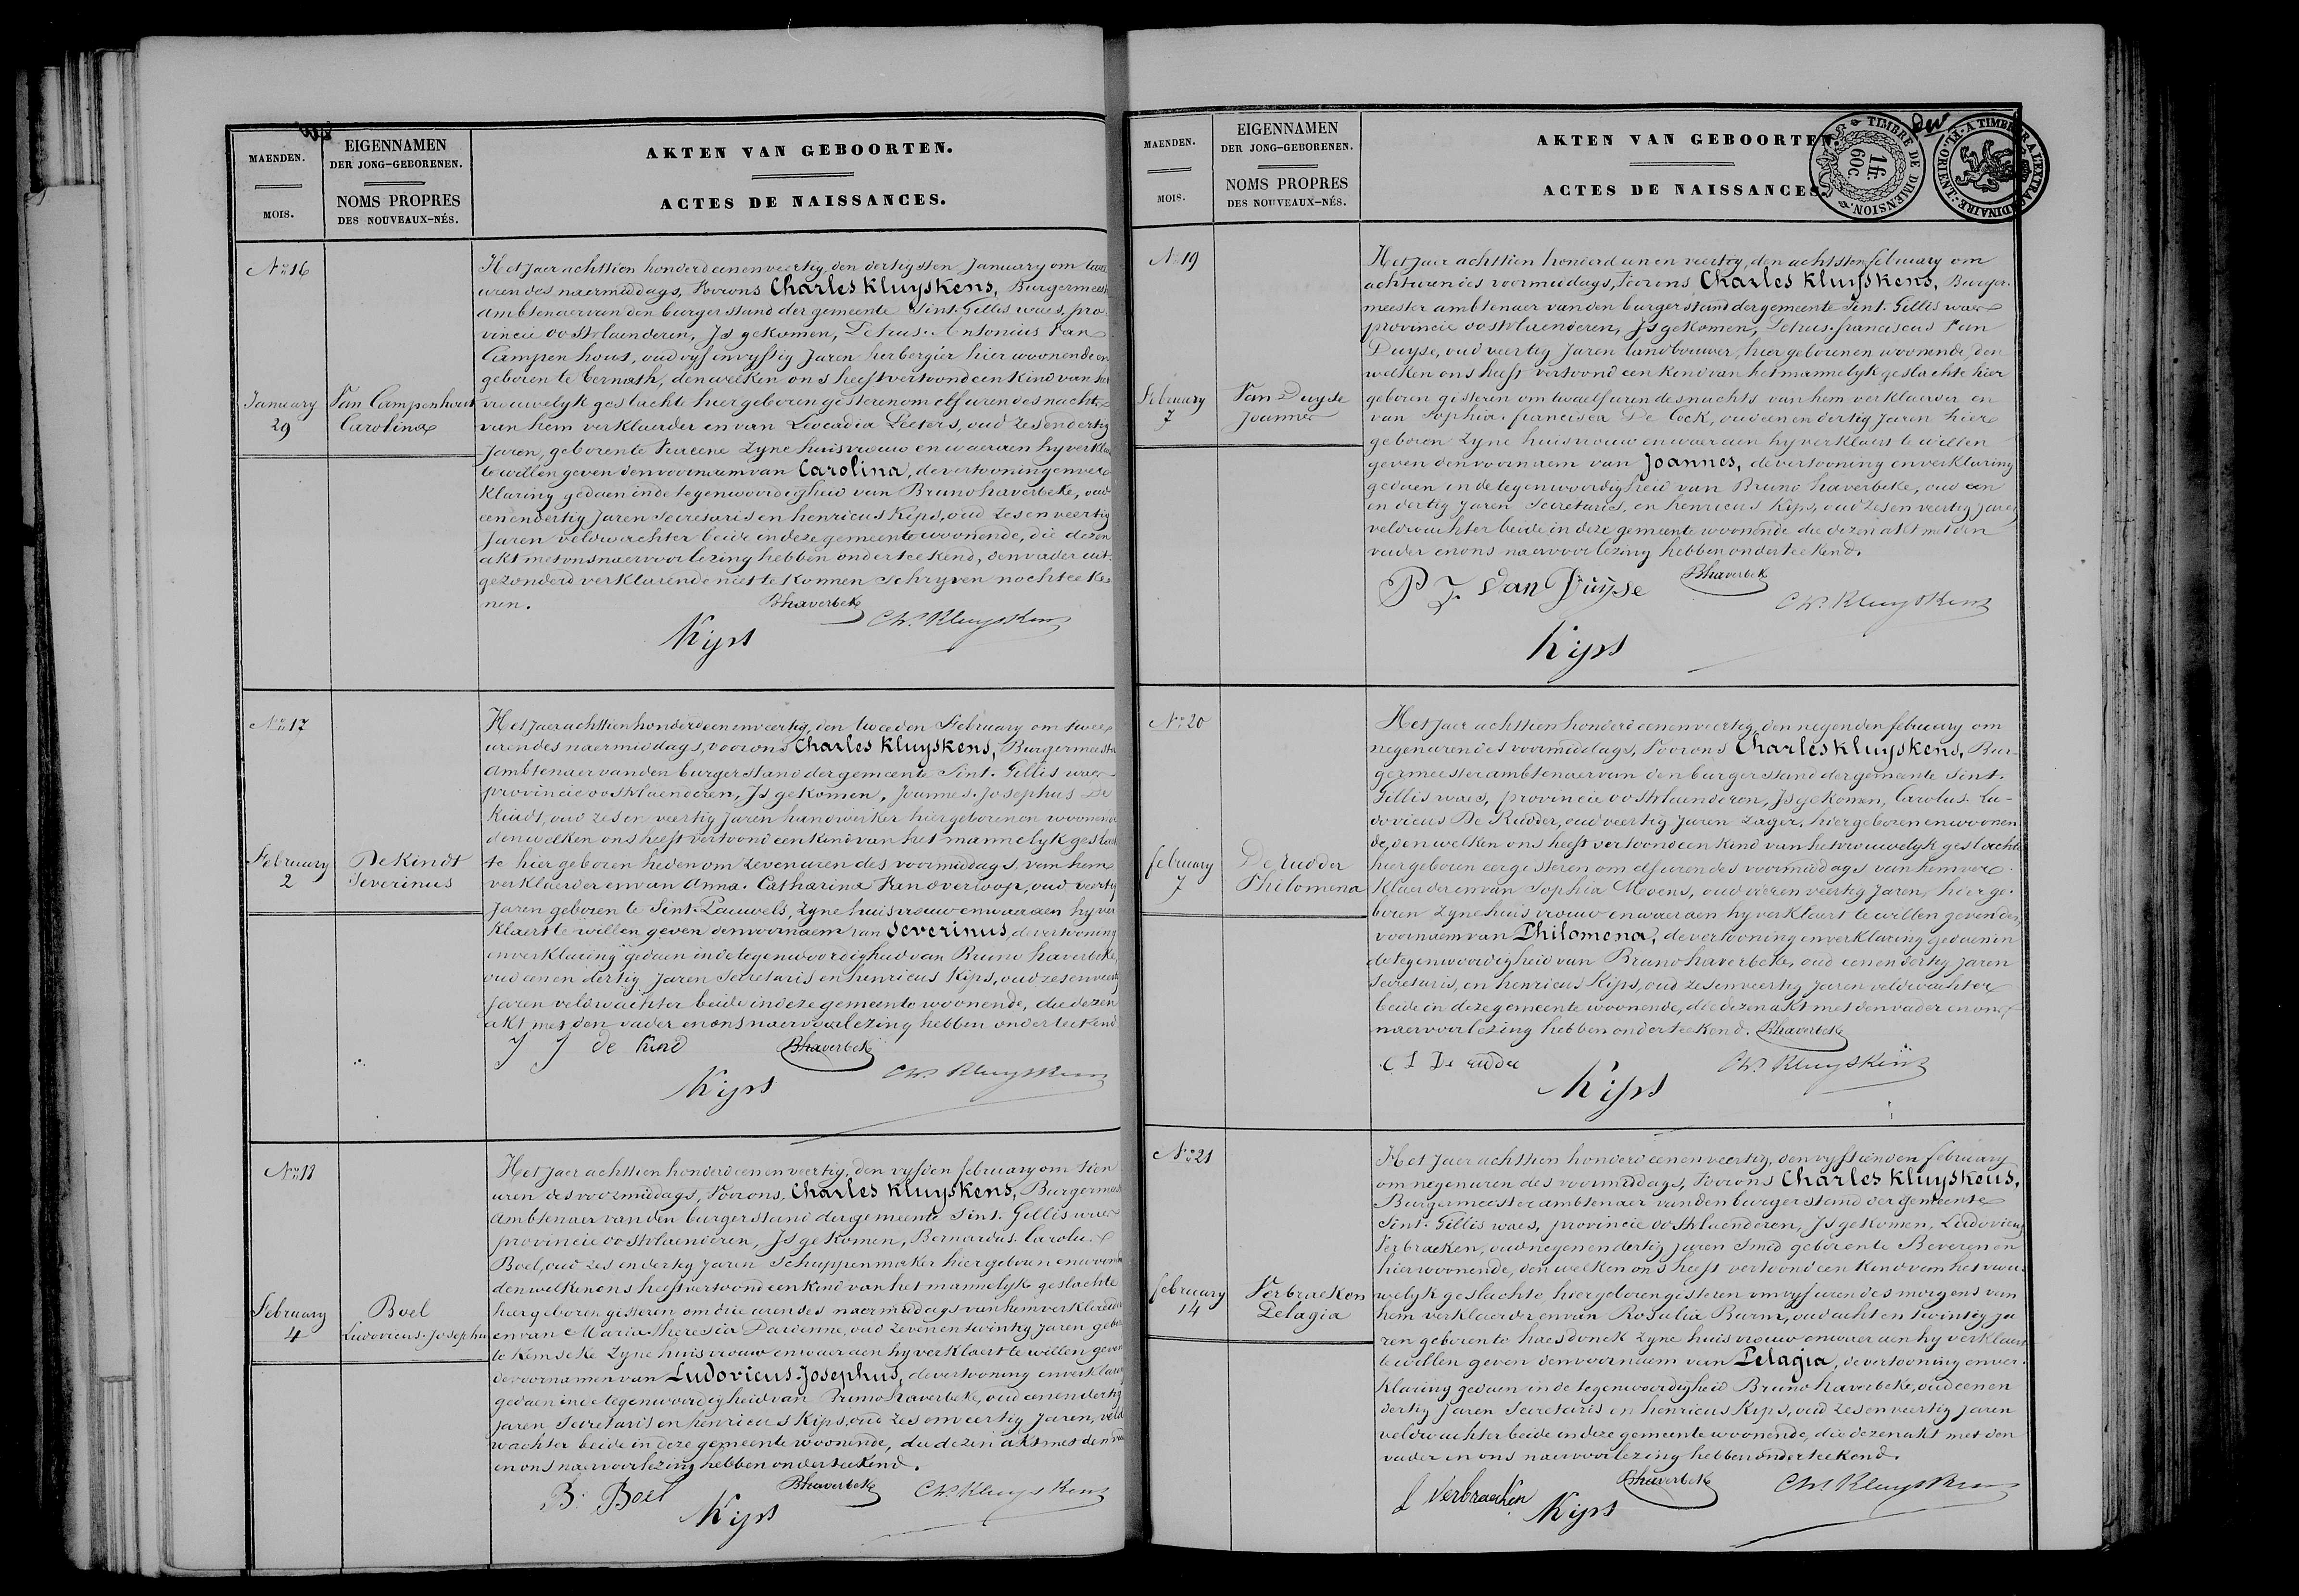 MAENDEN.
MOIS.
EIGENNAMEN
DER JONG-GEBORENEN.
NOMS PROPRES
DES NOUVEAUX-NÉS.
AKTEN VAN GEBOORTEN.
ACTES DE NAISSANCES.
No 16
January
29
Van Campenhout
Carolina
Het jaer achttien honderd eenenveertig, den dertigsten January om twee
uren des naermiddags, Voor ons Charles Kluyskens, Burgermeest
ambtenaer van den burgerstand der gemeente Sint-Gillis waes, pro
vincie oostvlaenderen, Is gekomen, Petrus-Antonius Van
Campenhout, oud vyf en vyftig Jaren herbergier hier woonende en
geboren te , denwelken ons heeft vertoond een kind van het
vrouwelyk geslachte hier geboren gisteren om elf uren des nachts
van hem verklaerder en van Leocadia Peeters, oud zesendertig
Jaren, geboren te Vracene Zyne huisvrouw en waeraen hy verklae
te willen geven den voornaem van Carolina, de vertooning en ver
klaring gedaen in de tegenwoordigheid van Bruno haverbeke, oud
eenendertig Jaren Secretaris en henricus Kips, oud zesenveertig
Jaren veldwachter beide in deze gemeente woonende, die dezen
akt met ons naer voorlezing hebben onderteekend, den vader uit-
gezonderd verklarende niet te konnen Schryven noch teeke
nen.
Bhaverbeke
Chs Kluyskens
Kips
No 17
February
2
De Kindt
Severinus
Het jaer achttien honderd eenenveertig, den tweeden February om twee
uren des naermiddags, voor ons Charles Kluyskens, Burgermeester
ambtenaer van den burgerstand der gemeente Sint-Gillis waes
provincie oostvlaenderen, Is gekomen, Joannes-Josephus De
Kindt, oud zes en veertig Jaren handwerker hier geboren en woonende
denwelken ons heeft vertoond een kind van het mannelyk geslach
te hier geboren heden om zeven uren des voormiddags, van hem
verklaerder en van Anna-Catharina Van overloop, oud veertig
Jaren geboren te Sint-Pauwels, Zyne huisvrouw en waeraen hy ver
klaert te willen geven den voornaem van Severinus, de vertooning
en verklaring gedaen in de tegenwoordigheid van Bruno haverbeke,
oud eenen dertig Jaren Secretaris en henricus Kips, oud zesenveertig
Jaren veldwachter beide in deze gemeente woonende, die dezen
akt met den vader en ons naer voorlezing hebben onderteekend
J J de kind
Bhaverbeke
Chs Kluyskens
Kips
No 18
February
4
Boel
Ludovicus-Josephus
Het jaer achttien honderd eenenveertig, den vyfden february om tien
uren des voormiddags, Voor ons, Charles Kluyskens, Burgermeest
ambtenaer van den burgerstand der gemeente Sint-Gillis waes
provincie oostvlaenderen, Is gekomen, Bernardus-Carolus
Boel, oud zes en dertig Jaren Schuppenmaker hier geboren en woonen
denwelken ons heeft vertoond een kind van het mannelyk geslachte
hier geboren gisteren om drie uren des naermiddags van hem verklaerder
en van Maria-theresia , oud zeven en twintig Jaren gebo
te Kemseke Zyne huisvrouw en waeraen hy verklaert te willen geven
de voornamen van Ludovicus-Josephus, de vertooning en verklaring
gedaen in de tegenwoordigheid van Bruno haverbeke, oud eenendertig
Jaren Secretaris en henricus Kips, oud zes en veertig Jaren, veld
wachter beide in deze gemeente woonende, die dezen akt met den vad
en ons naer voorlezing hebben onderteekend.
B: Boel
Bhaverbeke
Chs Kluyskens
Kips
MAENDEN.
MOIS.
EIGENNAMEN
DER JONG-GEBORENEN.
NOMS PROPRES
DES NOUVEAUX-NÉS.
AKTEN VAN GEBOORTEN.
ACTES DE NAISSANCES.
TIMBRE DE DIMENSION
1 fr.
60 c.
A TIMBRER A L'EXTRAORDINAIRE
FL. ORIENT.
No 19
February
7
Van Duyse
Joannes
Het jaer achttien honderd eenen veertig, den achtsten february om
acht uren des voormiddags, Voor ons Charles Kluyskens, Burger-
meester ambtenaer van den burgerstand der gemeente Sint-Gillis waes
provincie oostvlaenderen, Is gekomen, Petrus-franciscus Van
Duyse, oud veertig Jaren landbouwer, hier geboren en woonende, den
welken ons heeft vertoond een kind van het mannelyk geslachte hier
geboren gisteren om twaelf uren des nachts van hem verklaerder en
van Sophia-francisca De Cock, oud eenen dertig Jaren hier
geboren Zyne huisvrouw en waeraen hy verklaert te willen
geven den voornaem van Joannes, de vertooning en verklaring
gedaen in de tegenwoordigheid van Bruno haverbeke, oud een
en dertig Jaren Secretaris, en henricus Kips, oud zes en veertig Jaren
veldwachter beide in deze gemeente woonende die dezen akt met den
vader en ons naer voorlezing hebben onderteekend.
P F Van Duyse
Bhaverbeke
Chs Kluyskens
Kips
No 20
february
7
De rudder
Philomena
Het jaer achttien honderd eenenveertig, den negenden february om
negen uren des voormiddags, Voor ons Charles Kluyskens, Bur-
germeester ambtenaer van den burgerstand der gemeente Sint-
Gillis waes, provincie oostvlaenderen, Is gekomen, Carolus-Lu-
dovicus De Rudder, oud veertig Jaren Zager, hier geboren en woonen
de, denwelken ons heeft vertoond een kind van het vrouwelyk geslachte
hier geboren eergisteren om elf uren des voormiddags van hem ver
klaerder en van Sophia Mevens, oud vieren veertig Jaren, hier ge-
boren Zyne huisvrouw en waeraen hy verklaert te willen geven den
voornaem van Philomena, de vertooning en verklaring gedaen in
de tegenwoordigheid van Bruno haverbeke, oud eenendertig Jaren
Secretaris, en henricus Kips, oud zesenveertig Jaren veldwachter
beide in deze gemeente woonende, die dezen akt met den vader en ons
naer voorlezing hebben onderteekend. Bhaverbeke
C L De rudder
Chs Kluyskens
Kips
No 21
february
14
Verbraeken
Pelagia
Het Jaer achttien honderd eenenveertig, den vyftienden february
om negen uren des voormiddags, Voor ons Charles Kluyskens,
Burgermeester ambtenaer van den burgerstand der gemeente
Sint-Gillis waes, provincie oostvlaenderen, Is gekomen, Ludovicus
Verbraeken, oud negenendertig Jaren Smid geboren te Beveren en
hier woonende, denwelken ons heeft vertoond een kind van het vrou-
welyk geslachte hier geboren gisteren om vyf uren des morgens van
hem verklaerder en van Rosalia Burm, oud acht en twintig Ja
ren geboren te haesdonck Zyne huisvrouw en waeraen hy verklaert
te willen geven den voornaem van Pelagia, de vertooning en ver-
klaring gedaen in de tegenwoordigheid Bruno haverbeke, oud eenen
dertig Jaren Secretaris en henricus Kips, oud zesenveertig Jaren
veldwachter beide in deze gemeente woonende, die dezen akt met den
vader en ons naer voorlezing hebben onderteekend.
L Verbraeken
Bhaverbeke
Chs Kluyskens
Kips